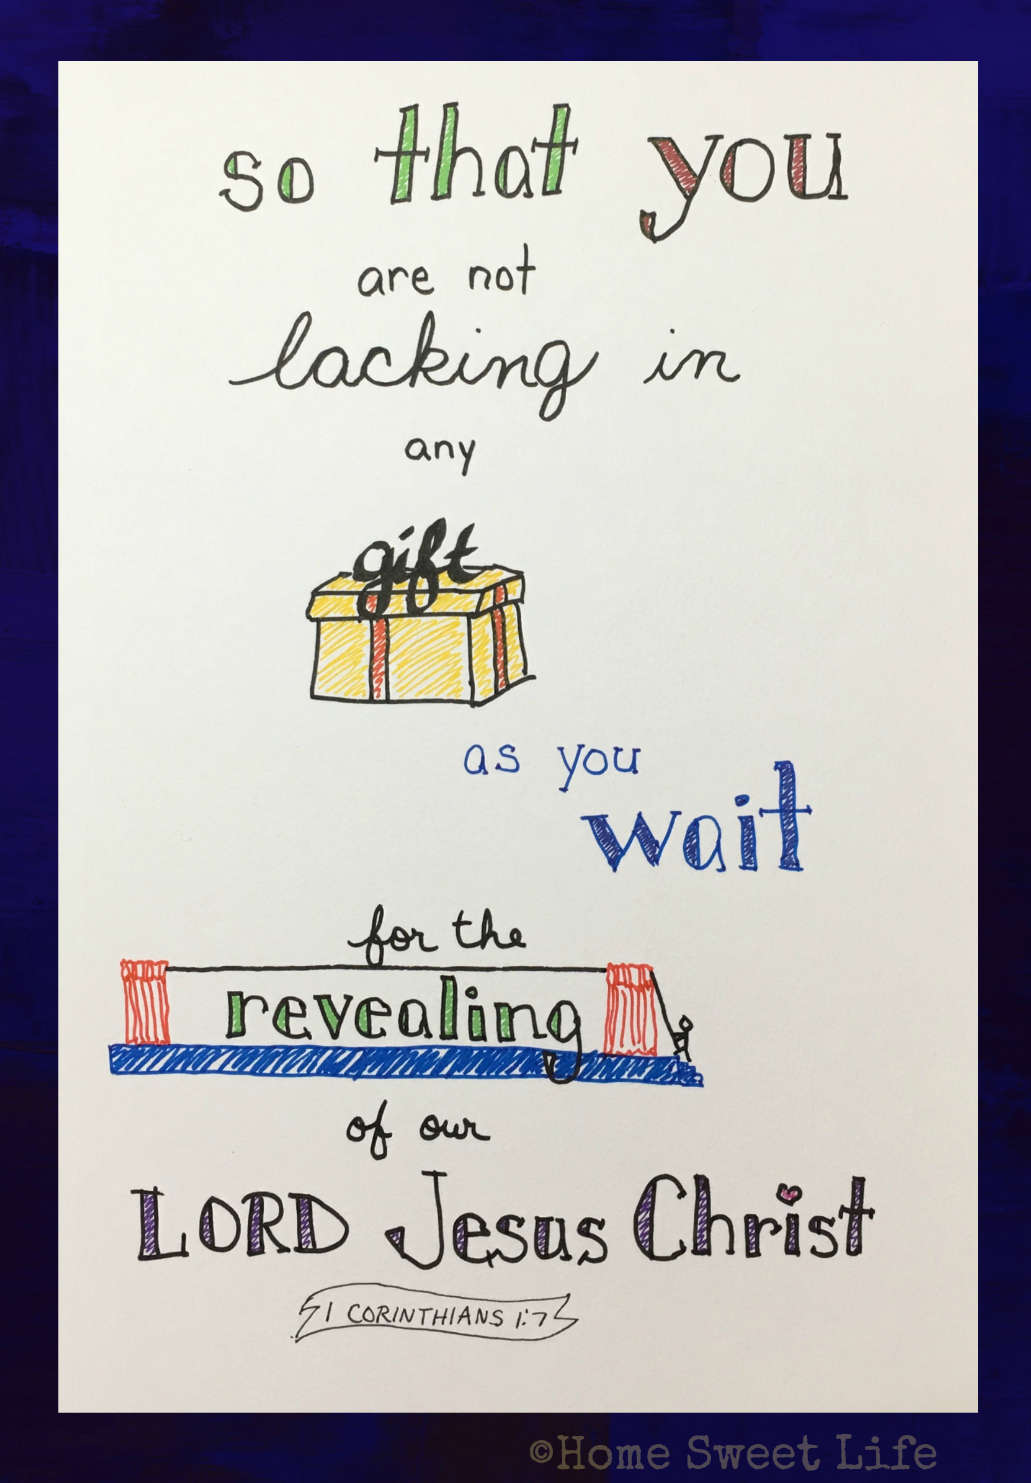 so that you
are not
lacking in
any
gift
as you
wait
for the
revealing
of our
LORD Jesus Christ
1 CORINTHIANS 1:7
©Home Sweet Life